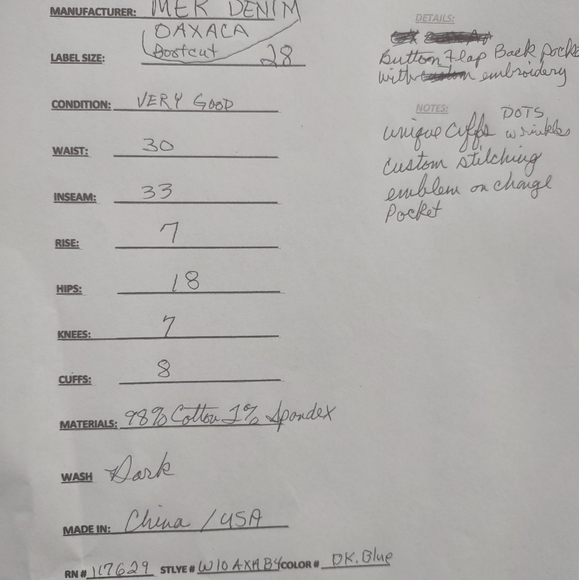 MANUFACTURER: MEK DENIM
OAXACA
Bootcut
LABEL SIZE: 28
CONDITION: VERY GOOD
WAIST: 30
INSEAM: 33
RISE: 7
HIPS: 18
KNEES: 7
CUFFS: 8
MATERIALS: 98% Cotton 2% Spandex
WASH Dark
MADE IN: China / USA
RN# 117629 STLYE # W10 AXAB4 COLOR # DK. Blue
DETAILS:
Button Flap Back Pocke
with embroidery
NOTES:
DOTS
unique Cuffs wrinkles
custom stitching
emblem on change
Pocket